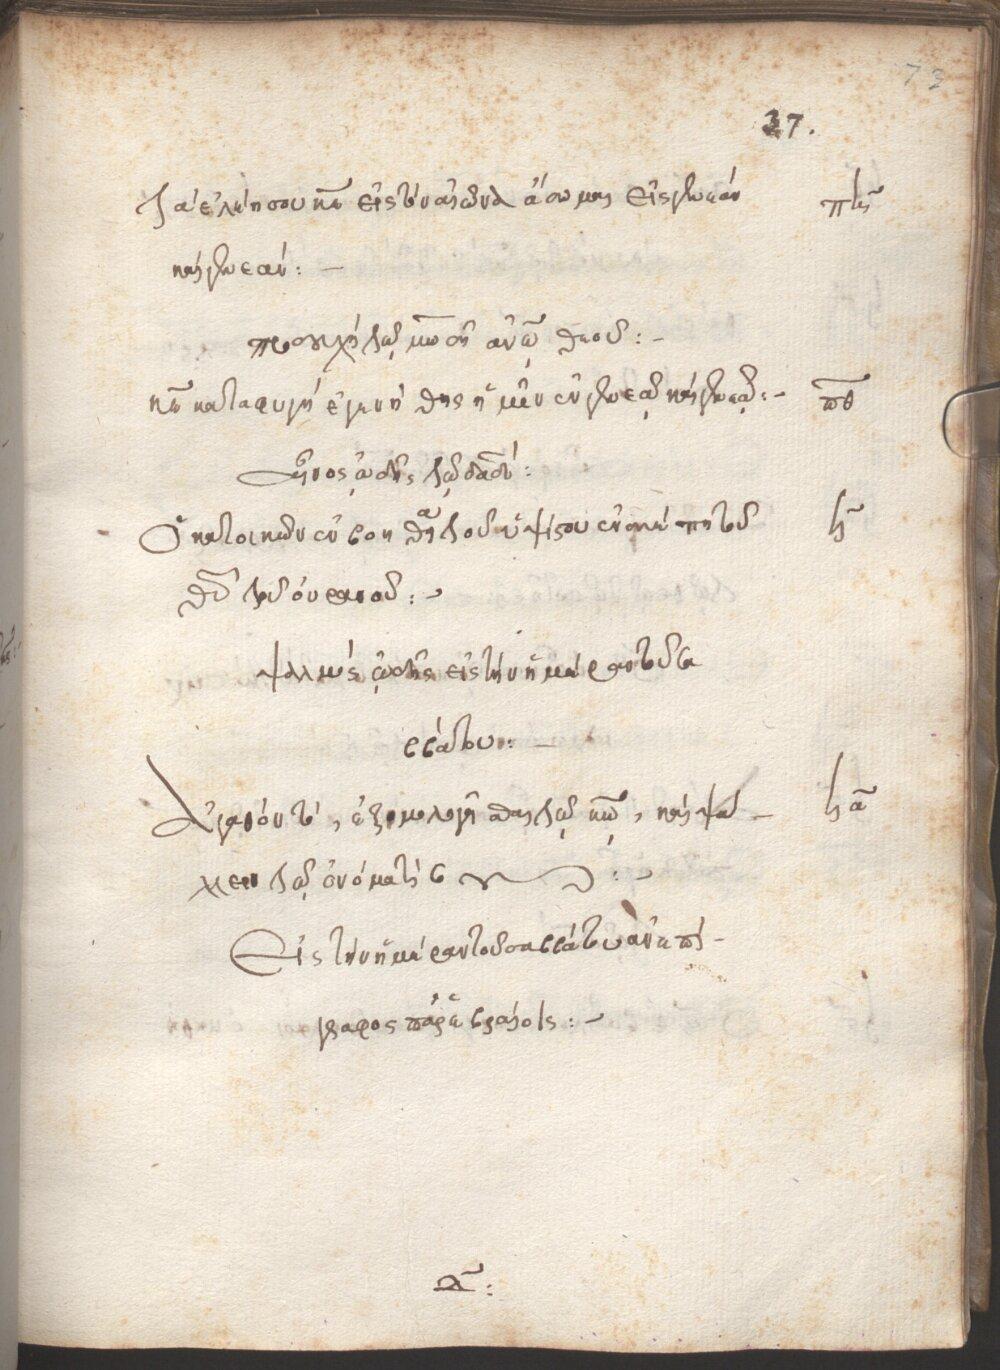 73
37.
Τὰ ἐλέη σου κε εἰς τὸν αἰῶνα ἄσομαι εἰς γενεὰν πη
καὶ γενεάν : —
προσευχὴ τῷ μωσῇ ἀνω θεοῦ : —
κε καταφυγὴ ἐγενήθης ἡμῖν ἐν γενεᾷ καὶ γενεᾷ : — πθ
αἶνος ᾠδῆς τῷ δαδ :
Ὁ κατοικῶν ἐν βοηθείᾳ τοῦ ὑψίστου ἐν σκέπῃ τοῦ ϟ
θυ τοῦ οὐρανοῦ : —
ψαλμὸς ᾠδῆς εἰς τὴν ἡμέραν τοῦ σα
ββάτου : —
Ἀγαθόν τὸ, ἐξομολογεῖσθαι τῷ κω, καὶ ψάλ — ϟα
λειν τῷ ὀνόματί σ : —
Εἰς τὴν ἡμέραν τοῦ σαββάτου ἀνεπί —
γραφος παρ' ἑβραίοις : —